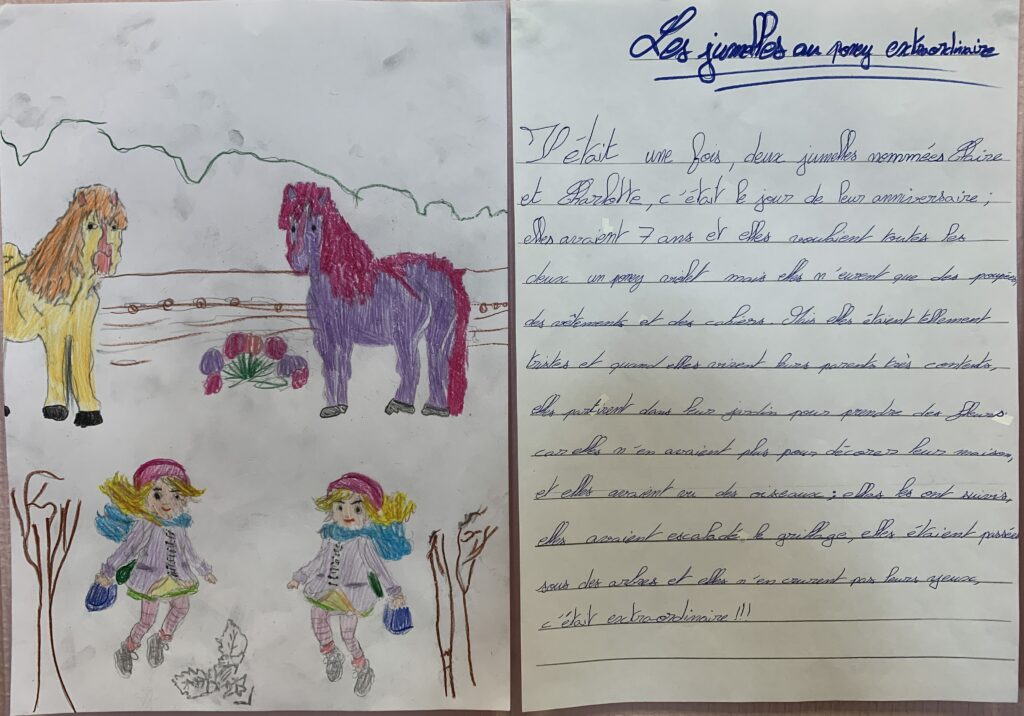 Les jumelles au poney extraordinaire
Il était une fois, deux jumelles nommées Claire
et Charlotte, c'était le jour de leur anniversaire ;
elles avaient 7 ans et elles voulaient toutes les
deux un poney mais elles n'eurent que des poupées,
des vêtements et des cahiers. Mais elles étaient tellement
tristes et quand elles virent leurs parents très contents,
elles partirent dans leur jardin pour prendre des fleurs
car elles n'en avaient plus pour décorer leur maison,
et elles avaient vu des oiseaux ; elles les ont suivis,
elles avaient escaladé le grillage, elles étaient passées
sous des arbres et elles n'en crurent pas leurs yeux,
c'était extraordinaire !!!